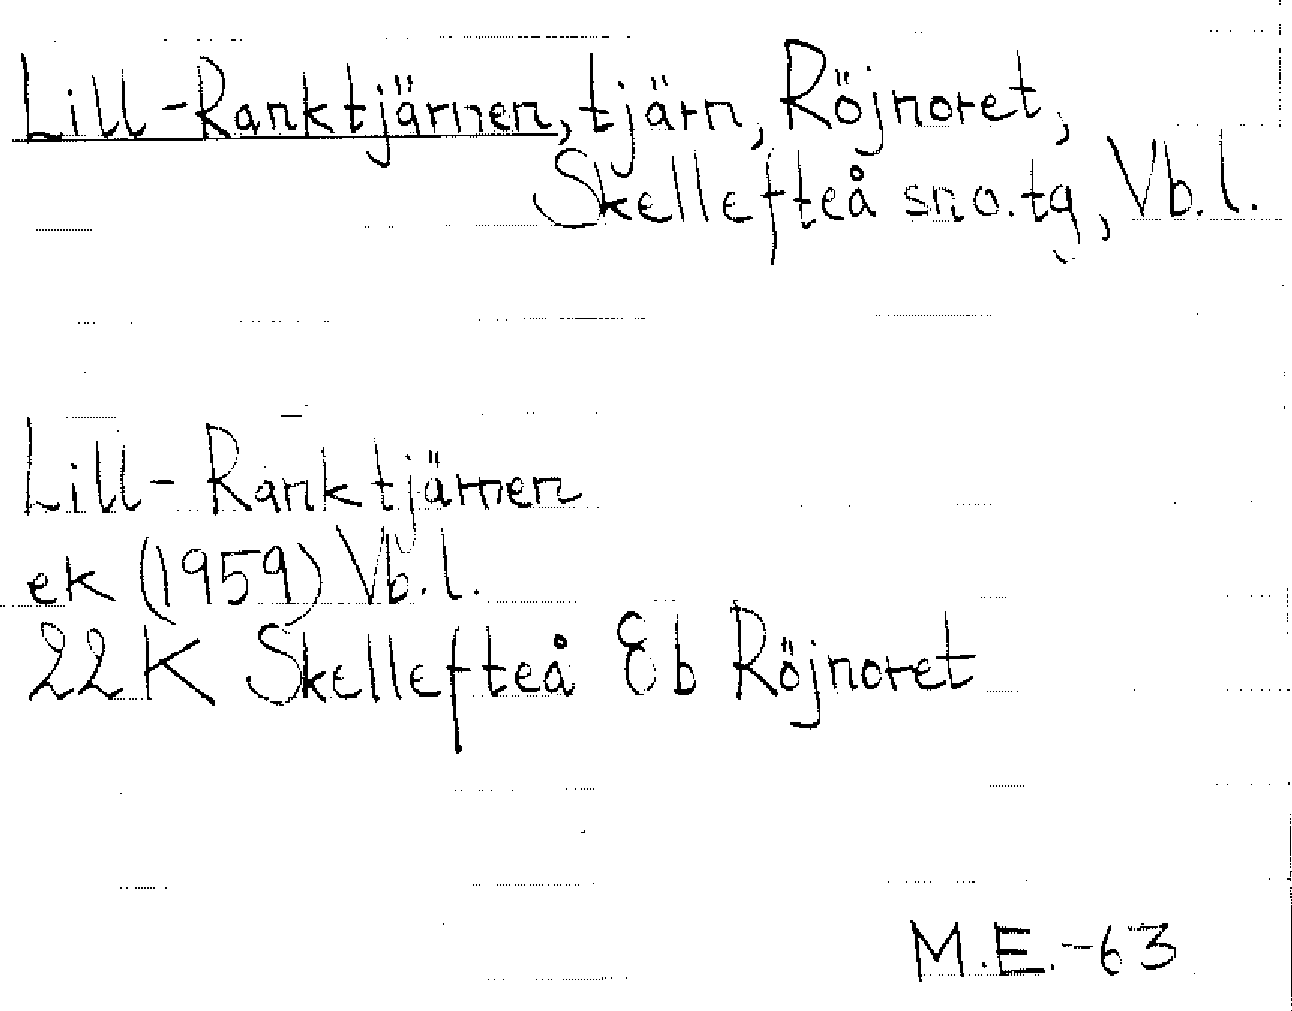 Lill-Ranktjärnen, tjärn, Röjnoret,
Skellefteå sn o. tg, Vb. l.
Lill-Ranktjärnen
ek (1959) Vb. l.
22 K Skellefteå 8b Röjnoret
M.E.-63